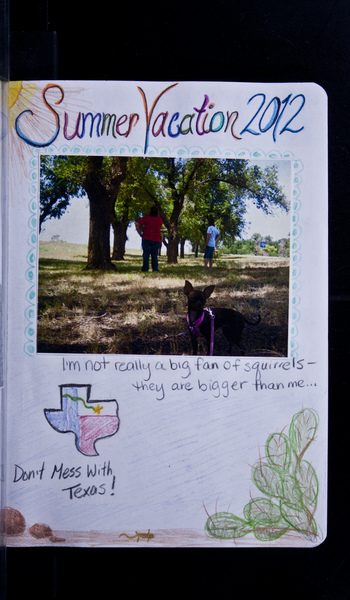 Summer Vacation 2012
I'm not really a big fan of squirrels -
they are bigger than me...
Don't Mess With
Texas!